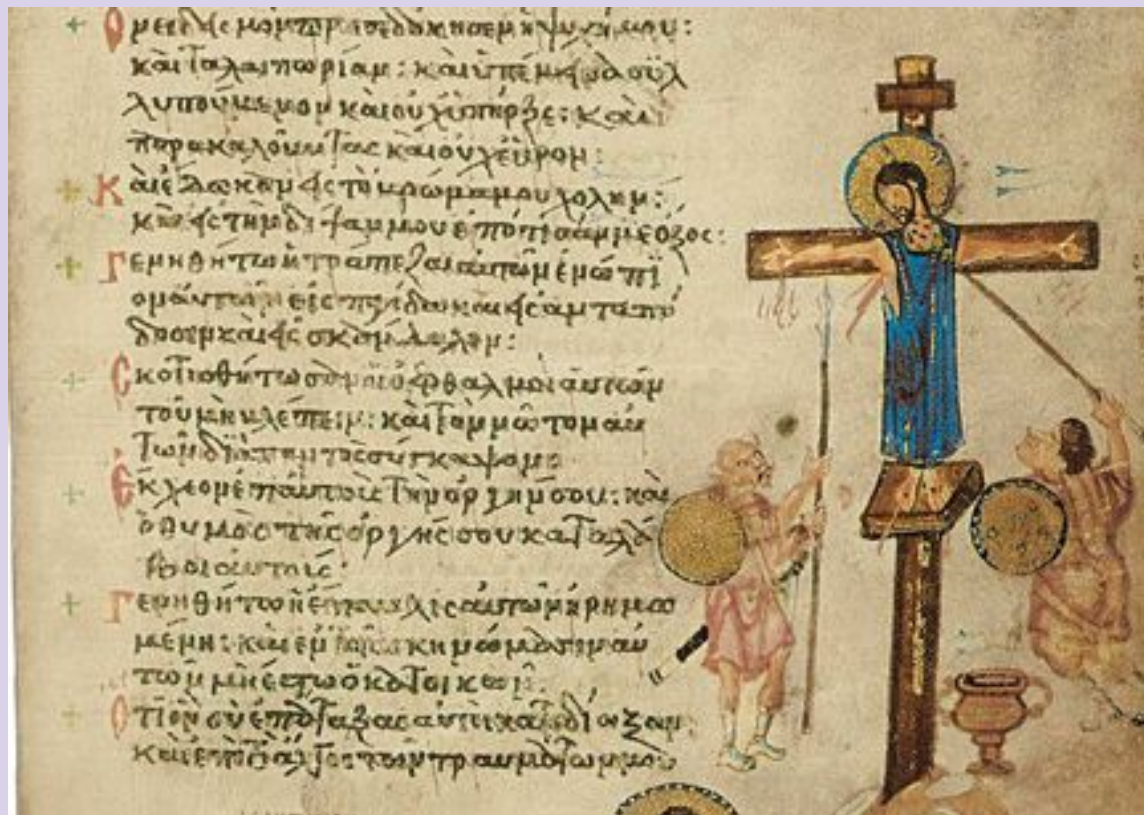 Ὀνειδισμὸν προσεδόκησεν ἡ ψυχή μου:
καὶ ταλαιπωρίαν: καὶ ὑπέμεινα συλ
λυπούμενον καὶ οὐχ ὑπῆρξε: καὶ
παρακαλοῦντας καὶ οὐχ εὗρον:
Καὶ ἔδωκαν εἰς τὸ βρῶμα μου χολήν:
καὶ εἰς τὴν δίψαν μου ἐπότισάν με ὄξος:
Γενηθήτω ἡ τράπεζα αὐτῶν ἐνώπι
ον αὐτῶν εἰς παγίδα καὶ εἰς ἀνταπό
δοσιν καὶ εἰς σκάνδαλον:
Σκοτισθήτωσαν οἱ ὀφθαλμοὶ αὐτῶν
τοῦ μὴ βλέπειν: καὶ τὸν νῶτον αὐ
τῶν διὰ παντὸς σύγκαμψον
Ἔκχεον ἐπ' αὐτοὺς τὴν ὀργήν σου: καὶ
ὁ θυμὸς τῆς ὀργῆς σου καταλά
βοι αὐτούς:
Γενηθήτω ἡ ἔπαυλις αὐτῶν ἠρημω
μένη: καὶ ἐν τοῖς σκηνώμασιν αὐ
τῶν μὴ ἔστω ὁ κατοικῶν:
Ὅτι ὃν σὺ ἐπάταξας αὐτοὶ κατεδίωξαν:
καὶ ἐπὶ τὸ ἄλγος τῶν τραυμάτων μου